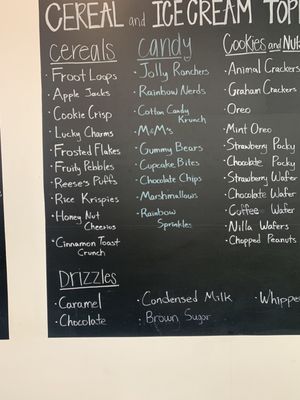 CEREAL and ICE CREAM TOPP
cereals
· Froot Loops
· Apple Jacks
· Cookie Crisp
· Lucky Charms
· Frosted Flakes
· Fruity Pebbles
· Reese's Puffs
· Rice Krispies
· Honey Nut
Cheerios
· Cinnamon Toast
Crunch
candy
· Jolly Ranchers
· Rainbow Nerds
· Cotton Candy
Krunch
· M&M's
· Gummy Bears
· Cupcake Bites
· Chocolate Chips
· Marshmallows
· Rainbow
Sprinkles
Cookies and Nuts
· Animal Crackers
· Graham Crackers
· Oreo
· Mint Oreo
· Strawberry Pocky
· Chocolate Pocky
· Strawberry Wafer
· Chocolate Wafer
· Coffee Wafer
· Nilla Wafers
· Chopped Peanuts
Drizzles
· Caramel
· Chocolate
· Condensed Milk
· Brown Sugar
· Whippe